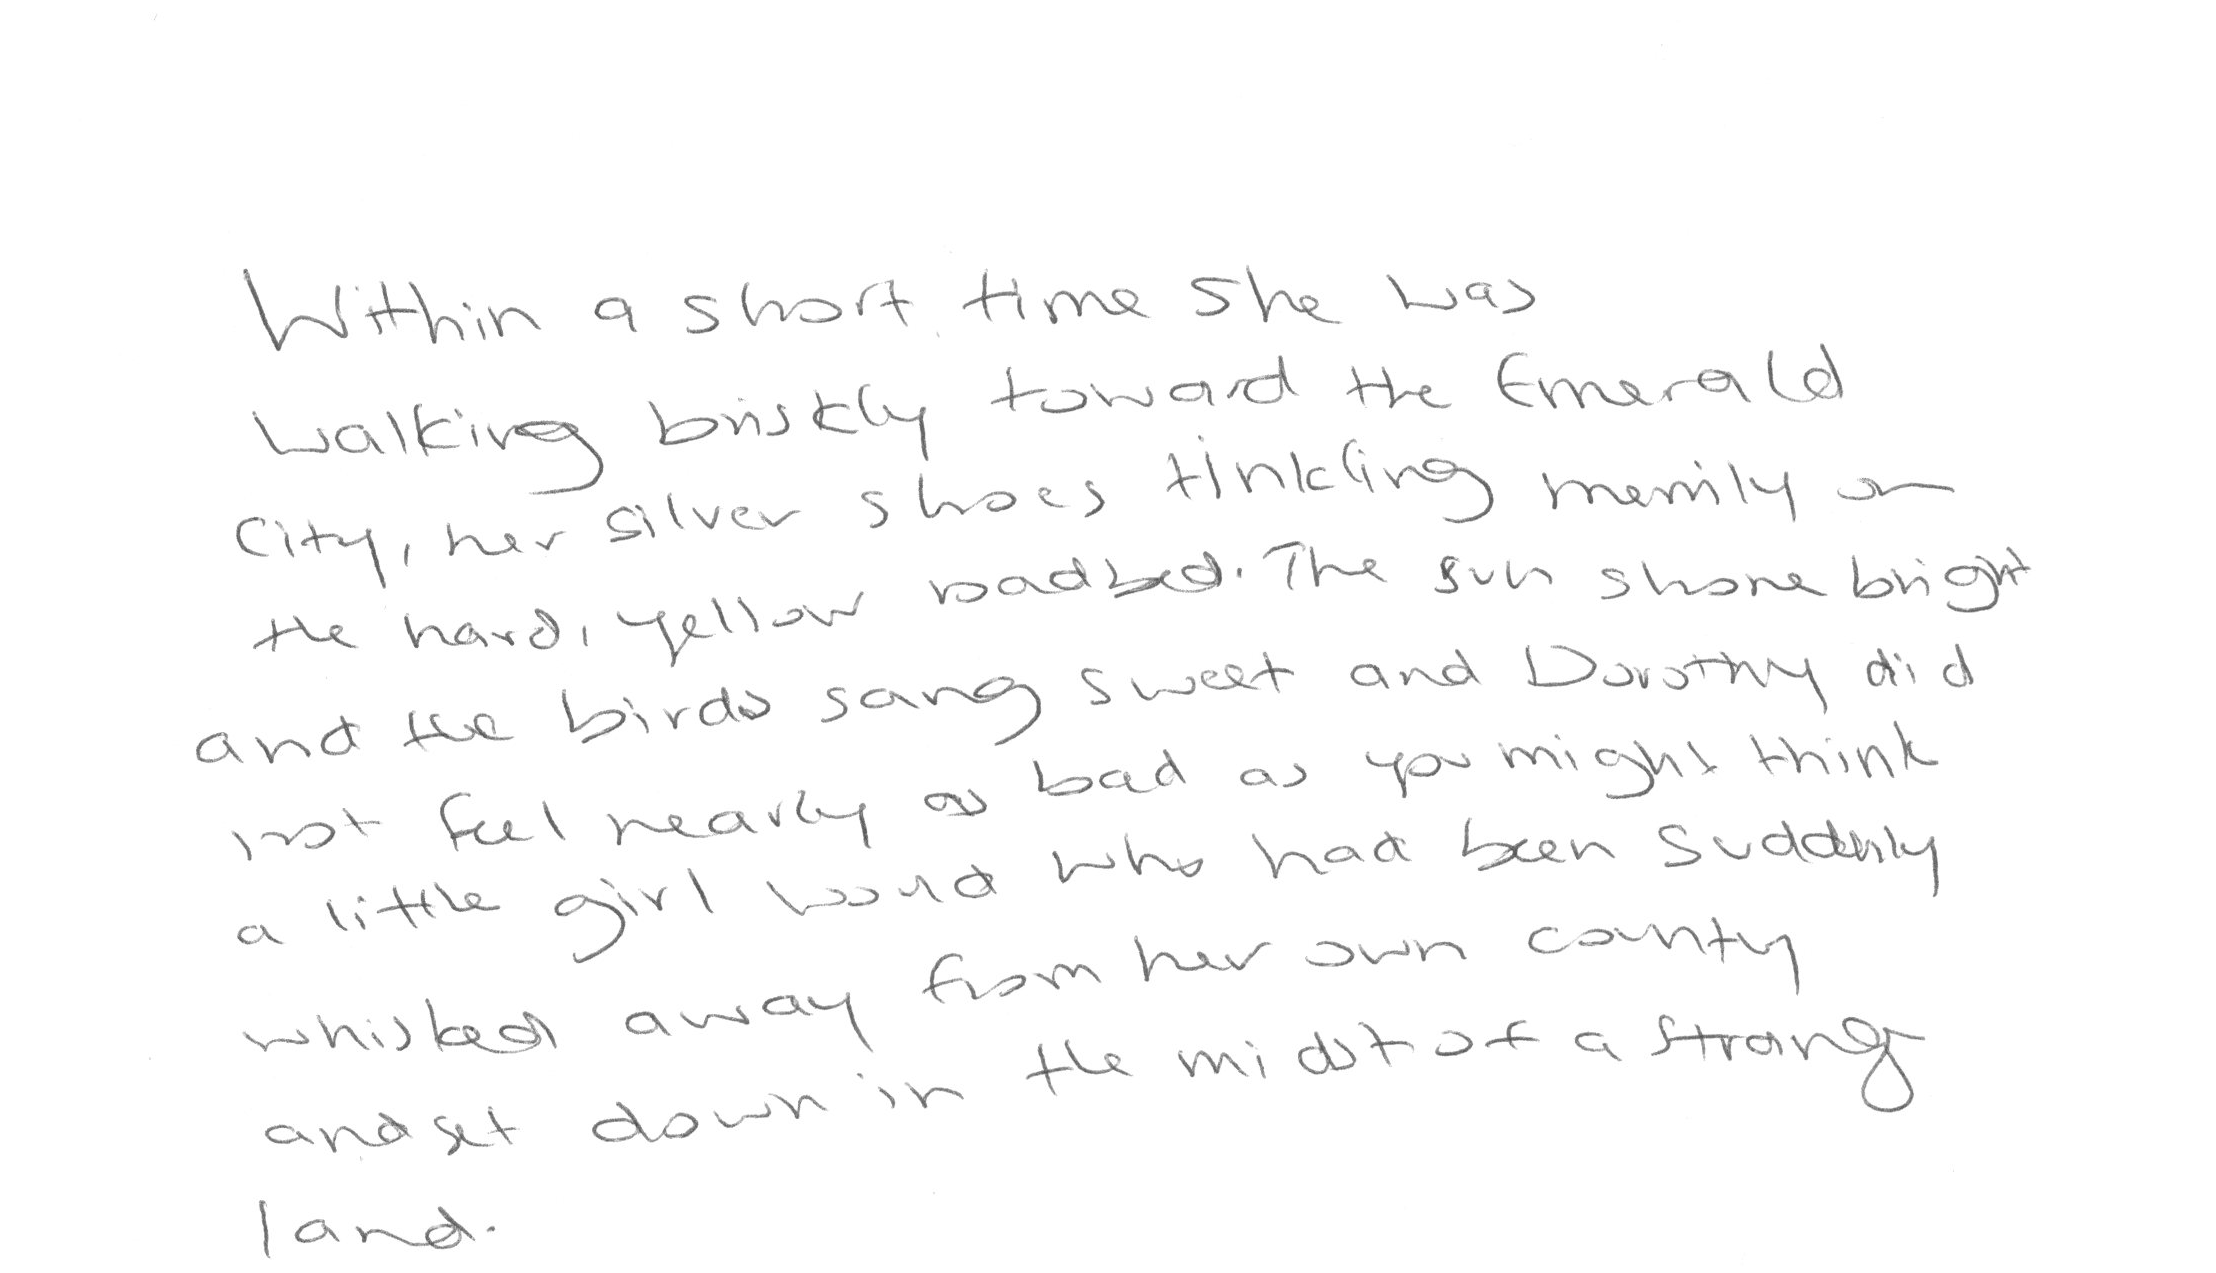 Within a short time she was
walking briskly toward the Emerald
City, her silver shoes tinkling merrily on
the hard, yellow roadbed. The sun shone bright
and the birds sang sweet and Dorothy did
not feel nearly as bad as you might think
a little girl would who had been suddenly
whisked away from her own country
and set down in the midst of a strange
land.